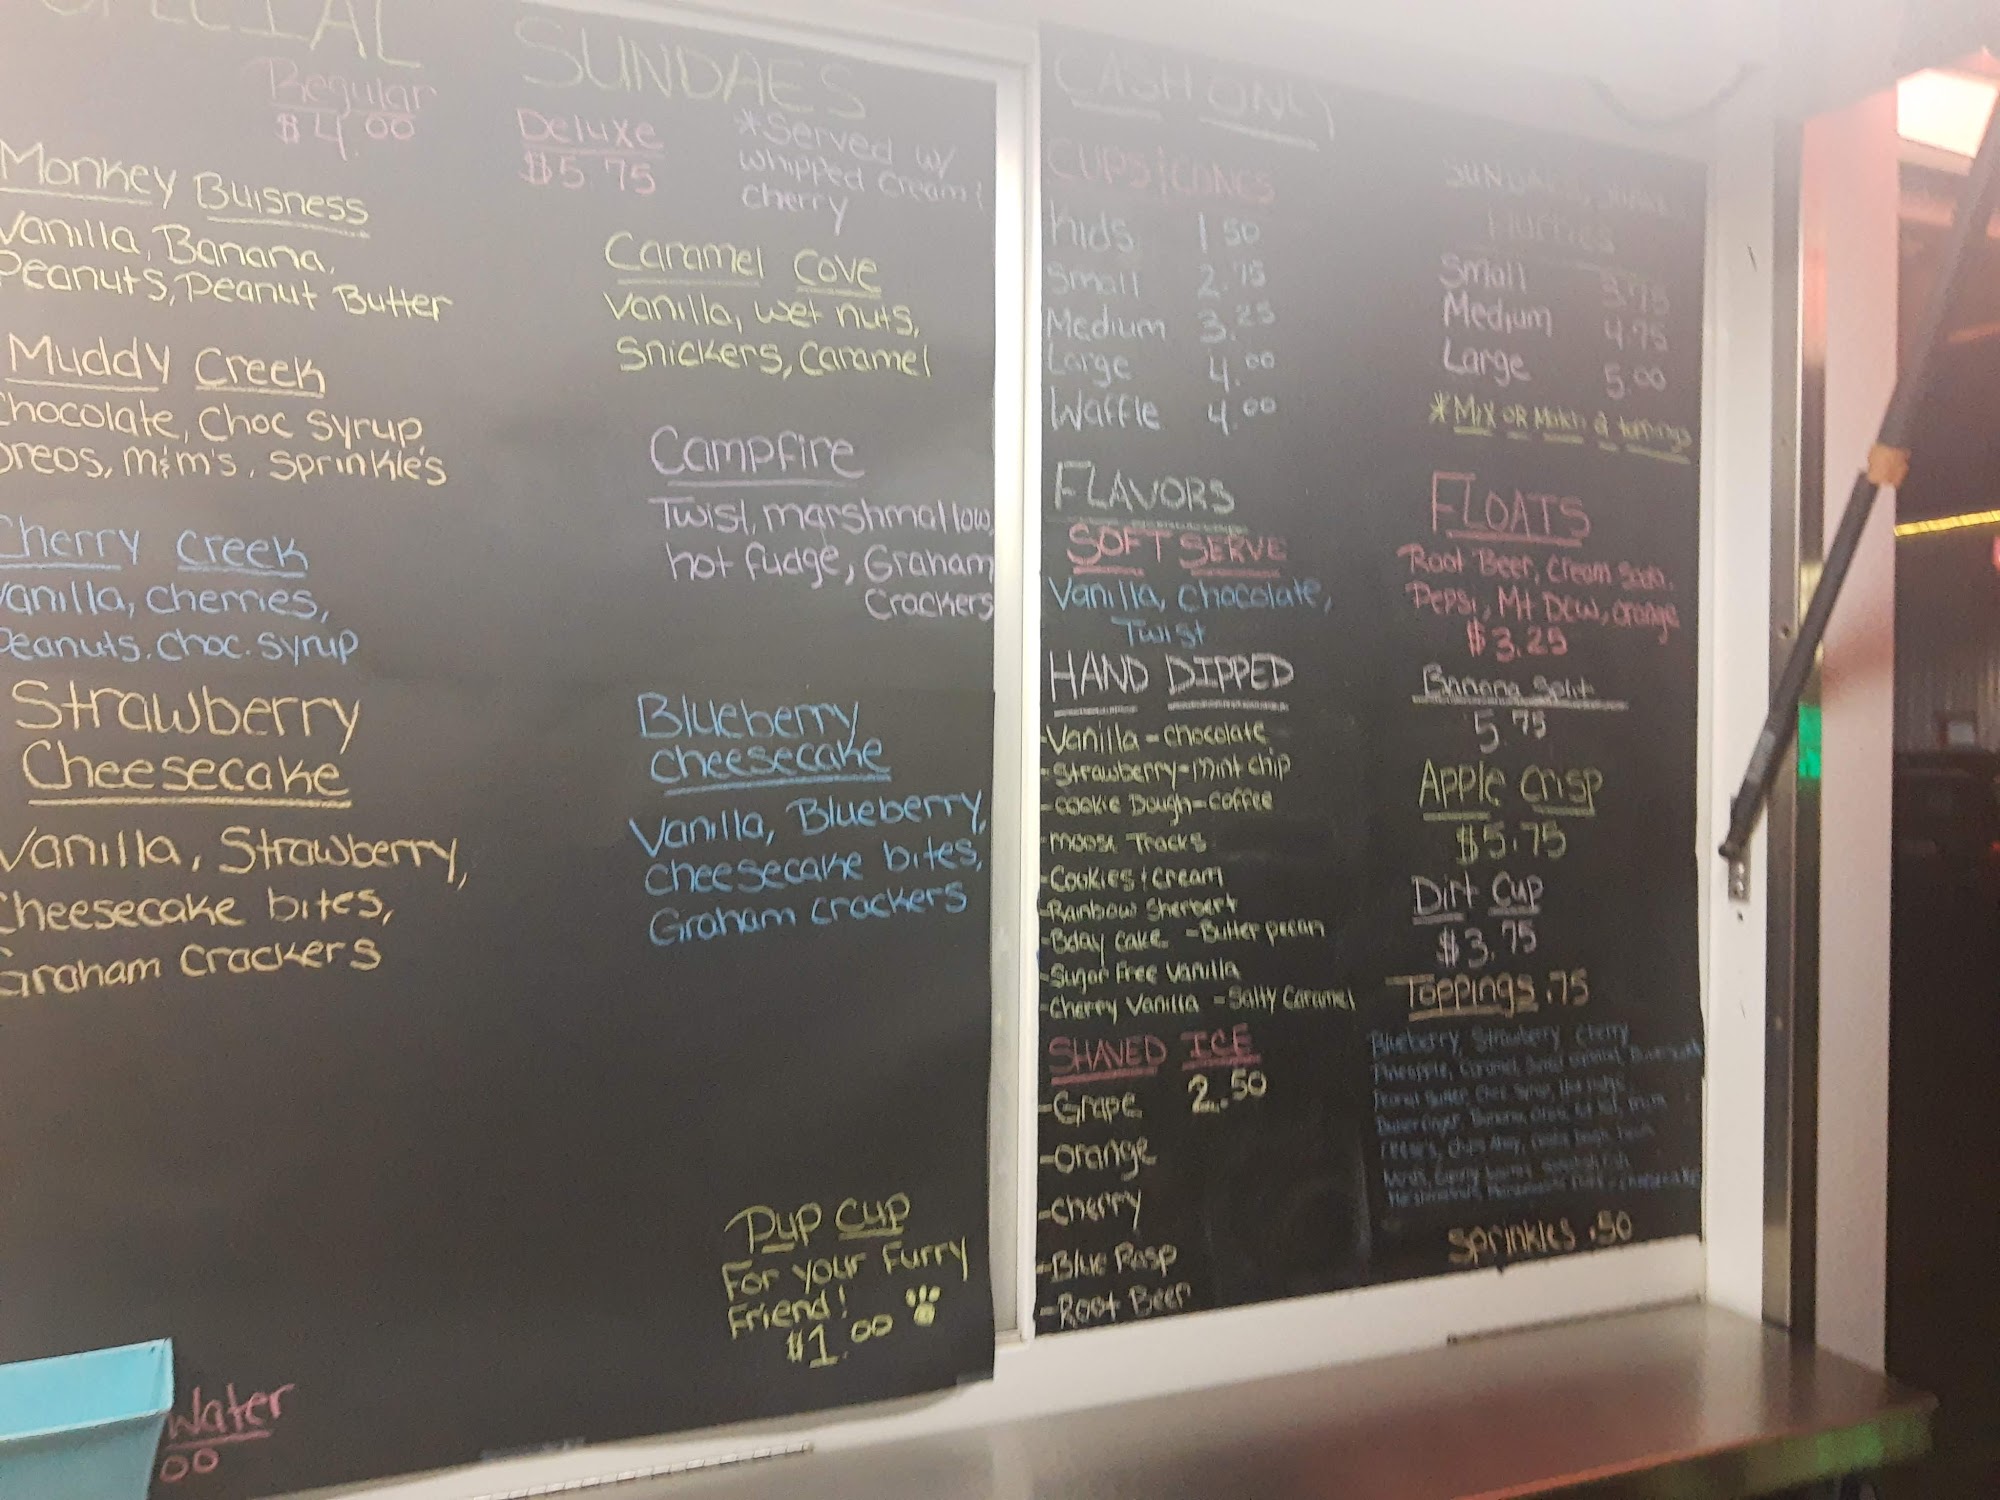 SPECIAL SUNDAES
Regular
$4.00
Deluxe
$5.75
*Served w/
whipped cream &
cherry
Monkey Buisness
Vanilla, Banana,
Peanuts, Peanut Butter
Muddy Creek
Chocolate, Choc Syrup,
Oreos, m&m's, Sprinkle's
Cherry Creek
Vanilla, cherries,
Peanuts, choc. syrup
Strawberry
Cheesecake
Vanilla, Strawberry,
Cheesecake bites,
Graham Crackers
Caramel Cove
Vanilla, wet nuts,
Snickers, Caramel
Campfire
Twist, marshmallow,
hot fudge, Graham
Crackers
Blueberry
Cheesecake
Vanilla, Blueberry,
cheesecake bites,
Graham crackers
Pup Cup
For your Furry
Friend!
$1.00
Water
00
CASH ONLY
CUPS & CONES
Kids 1.50
Small 2.75
Medium 3.25
Large 4.00
Waffle 4.00
FLAVORS
SOFT SERVE
Vanilla, chocolate,
Twist
HAND DIPPED
-Vanilla -chocolate
-Strawberry -mint chip
-cookie Dough -coffee
-moose Tracks
-Cookies & cream
-Rainbow Sherbert
-Bday Cake -Butter pecan
-Sugar Free Vanilla
-Cherry Vanilla -Salty Caramel
SHAVED ICE
2.50
-Grape
-orange
-cherry
-Blue Rasp
-Root Beer
SUNDAES,
Small 3.75
Medium 4.75
Large 5.00
*Mix or Match 2 toppings
FLOATS
Root Beer, cream soda,
Pepsi, Mt Dew, orange
$3.25
Banana Split
5.75
Apple Crisp
$5.75
Dirt Cup
$3.75
Toppings .75
Blueberry, Strawberry, Cherry
Pineapple, Caramel,
Peanut Butter, Choc Syrup, Hot Fudge
Sprinkles .50